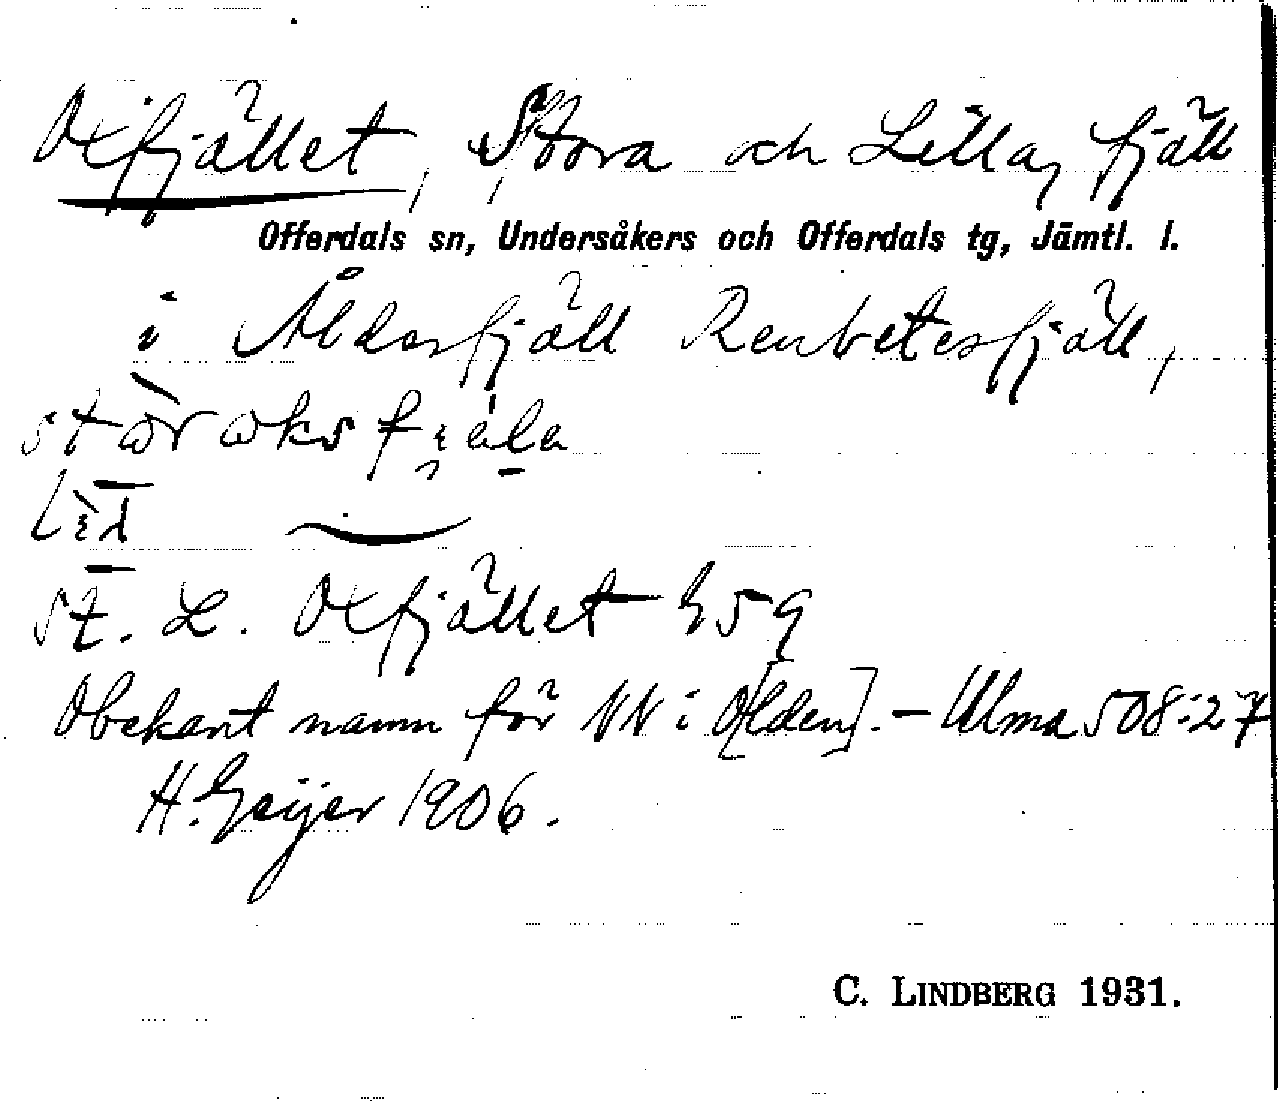 Oxfjället, Stora och Lilla, fjäll
Offerdals sn, Undersåkers och Offerdals tg, Jämtl. l.
i Åldersfjäll Renbetesfjäll,
stœ̀r ωks fjäla
St. L. Oxfjället G59
Obekant namn för NN i O[lden]. – Ulma 508:27
H. Geijer 1906.
C. LINDBERG 1931.